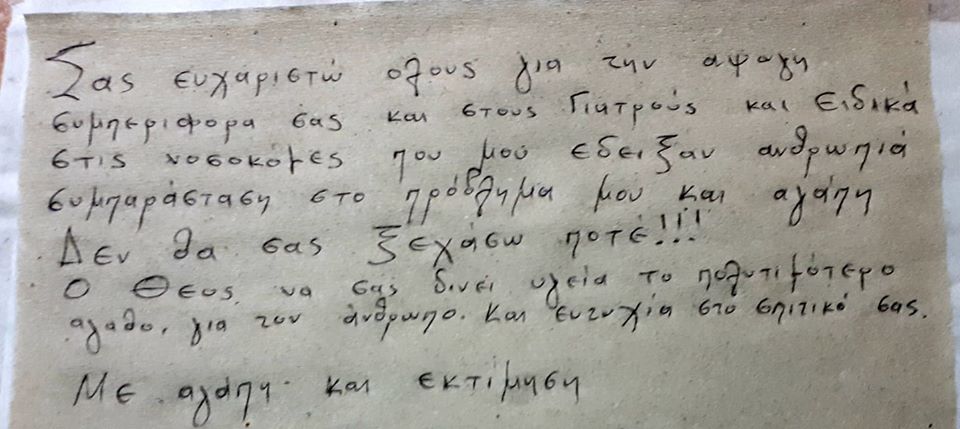 Σας ευχαριστώ ολους για την αψογη
συμπεριφορα σας και στους Γιατρούς και ειδικά
στις νοσοκόμες που μού εδειξαν ανθρωπιά
συμπαράσταση στο πρόβλημα μου και αγάπη
Δεν θα σας ξεχάσω ποτέ!!!
Ο Θεος να σάς δινει υγεία το πολυτιμότερο
αγαθο, για τον άνθρωπο. Και ευτυχία στο σπιτικό σας.
Με αγάπη και εκτίμηση